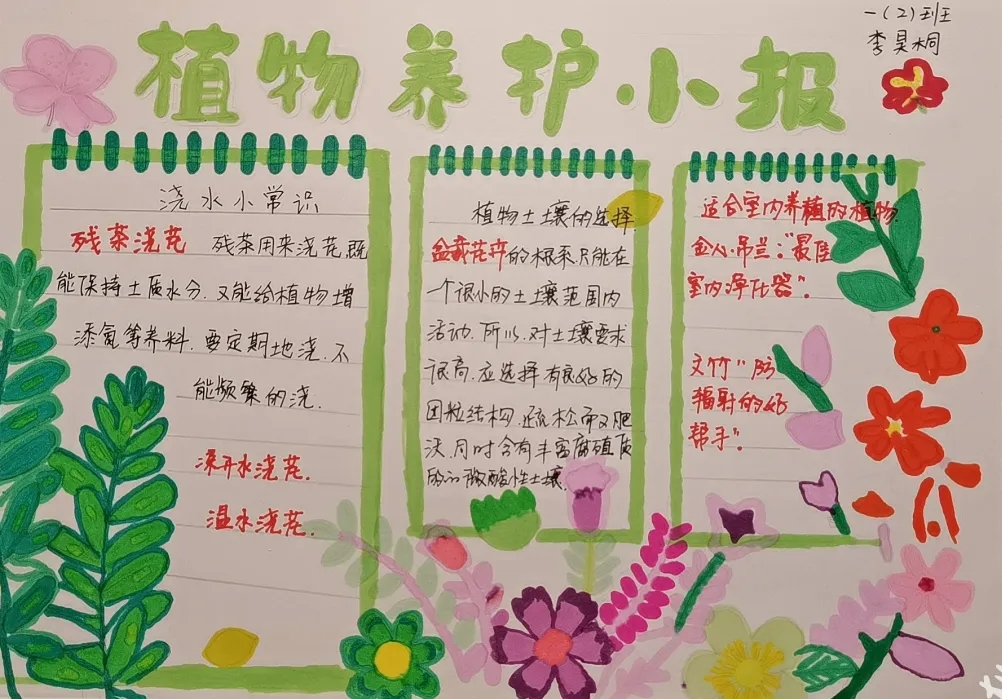 植物养护小报
一(2)班
李昊桐
浇水小常识
残茶浇花 残茶用来浇花,既
能保持土质水分,又能给植物增
添氮等养料.要定期地浇,不
能频繁的浇.
凉开水浇花.
温水浇花.
植物土壤的选择
盆栽花卉的根系只能在
一个很小的土壤范围内
活动.所以,对土壤要求
很高,应选择有良好的
团粒结构,疏松而又肥
沃,同时含有丰富腐殖质
的 微酸性土壤
适合室内养植的植物
金心吊兰:“最佳
室内净化器”.
文竹“防
辐射的好
帮手”.